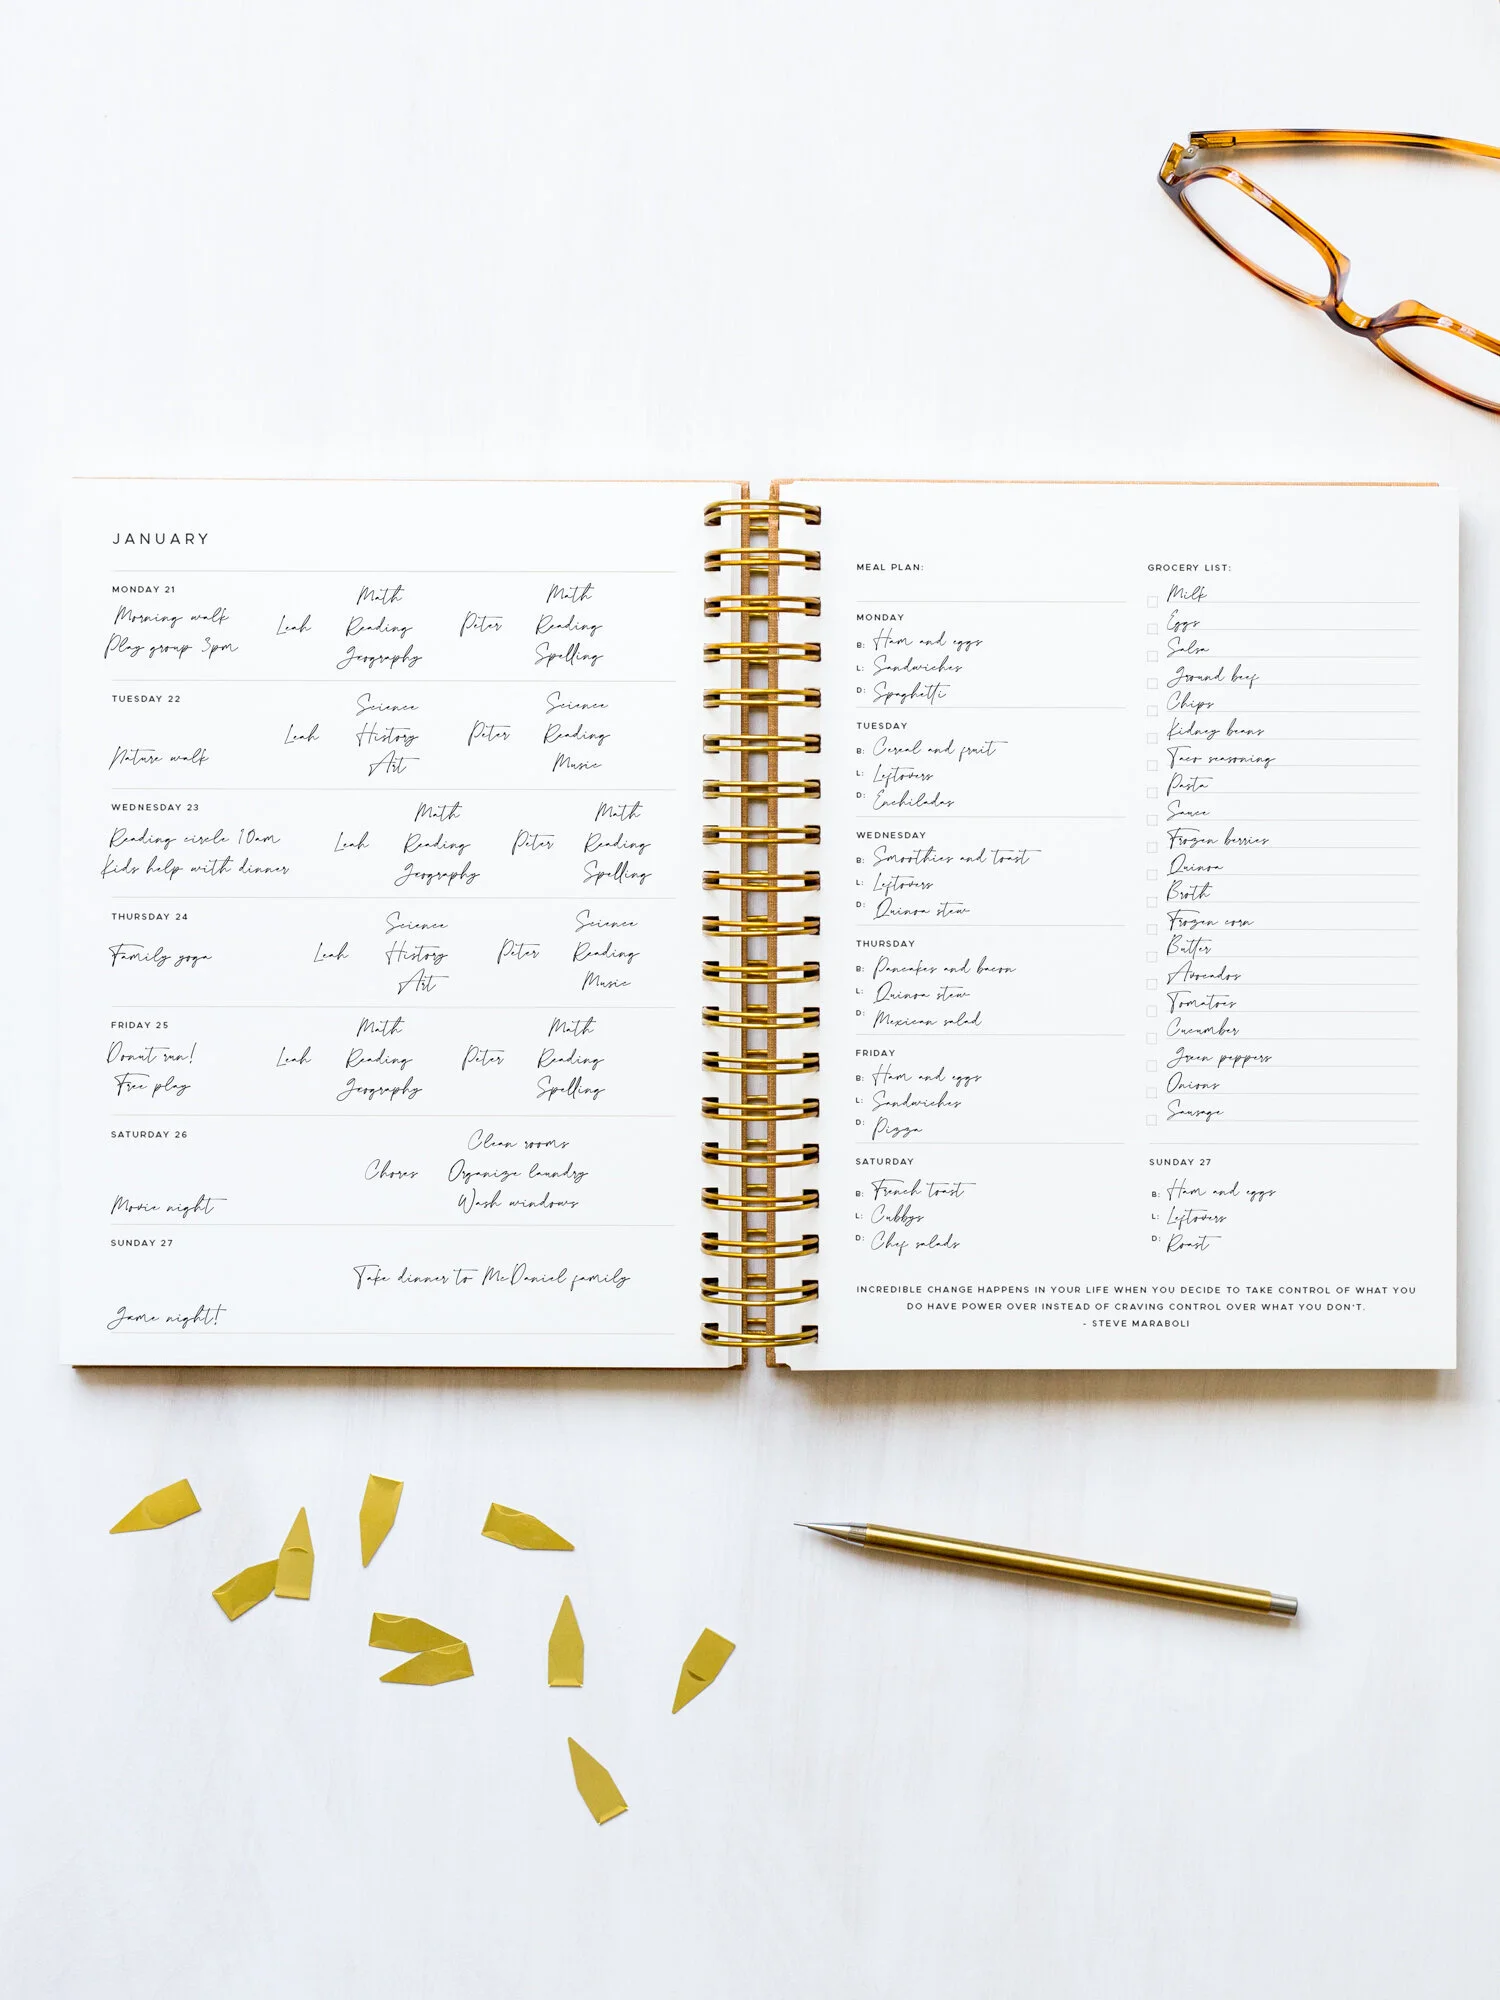 JANUARY
MONDAY 21
Math Math
Morning walk Leah Reading Peter Reading
Play group 3pm Geography Spelling
TUESDAY 22
Science Science
Leah History Peter Reading
Nature walk Art Music
WEDNESDAY 23
Math Math
Reading circle 10am Leah Reading Peter Reading
Kids help with dinner Geography Spelling
THURSDAY 24
Science Science
Family yoga Leah History Peter Reading
Art Music
FRIDAY 25
Math Math
Donut run! Leah Reading Peter Reading
Free play Geography Spelling
SATURDAY 26
Clean rooms
Chores Organize laundry
Movie night Wash windows
SUNDAY 27
Take dinner to McDaniel family
Game night!
MEAL PLAN:
MONDAY
B: Ham and eggs
L: Sandwiches
D: Spaghetti
TUESDAY
B: Cereal and fruit
L: Leftovers
D: Enchiladas
WEDNESDAY
B: Smoothies and toast
L: Leftovers
D: Quinoa stew
THURSDAY
B: Pancakes and bacon
L: Quinoa stew
D: Mexican salad
FRIDAY
B: Ham and eggs
L: Sandwiches
D: Pizza
SATURDAY
B: French toast
L: Cubbys
D: Chef salads
GROCERY LIST:
Milk
Eggs
Salsa
Ground beef
Chips
Kidney beans
Taco seasoning
Pasta
Sauce
Frozen berries
Quinoa
Broth
Frozen corn
Butter
Avocados
Tomatoes
Cucumber
Green peppers
Onions
Sausage
SUNDAY 27
B: Ham and eggs
L: Leftovers
D: Roast
INCREDIBLE CHANGE HAPPENS IN YOUR LIFE WHEN YOU DECIDE TO TAKE CONTROL OF WHAT YOU
DO HAVE POWER OVER INSTEAD OF CRAVING CONTROL OVER WHAT YOU DON'T.
- STEVE MARABOLI